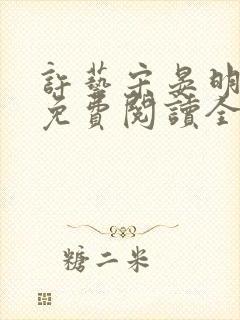 許藝宋晏明
免費閱讀全
糖二米